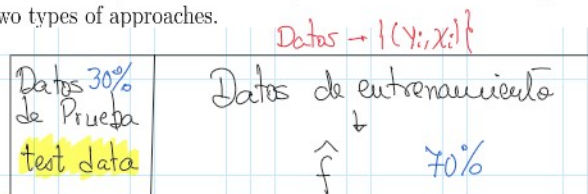 wo types of approaches.
Datos → {(Yi, Xi)}
Datos 30%
de Prueba
test data
Datos de entrenamiento
↓
f̂ 70%